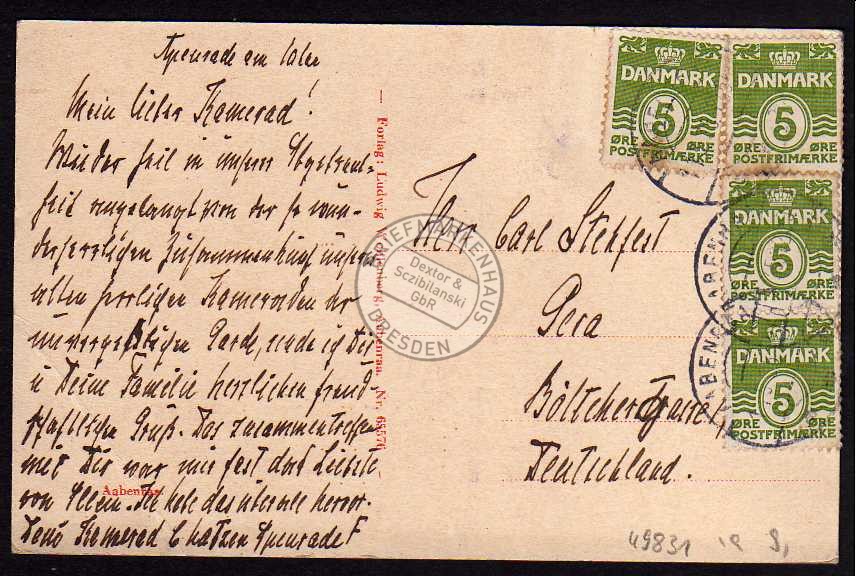 Apenrade am
Mein lieber Kamerad!
Wieder heil in unserer
heil angelangt von der so wun-
derherrlichen Zusammenkunft unserer
alten herrlichen Kameraden der
unvergeßlichen Garde, sende ich Dir
u Deine Familie herzlichen freund
schaftlichen Gruß. Das zusammentreffen
mit Dir war mir fast das Liebste
von Allem. Ich hebe das überall hervor.
Dein Kamerad Apenrade F
Aabenraa.
— Forlag: Ludwig Aabenraa. Nr. 65576 —
Herr Carl Stehfest
Gera
Böttchergasse
Deutschland.
DANMARK
5
ØRE ØRE
POSTFRIMÆRKE
DANMARK
5
ØRE ØRE
POSTFRIMÆRKE
DANMARK
5
ØRE ØRE
POSTFRIMÆRKE
DANMARK
5
ØRE ØRE
POSTFRIMÆRKE
BRIEFMARKENHAUS
Dextor &
Sczibilanski
GbR
DRESDEN
49831